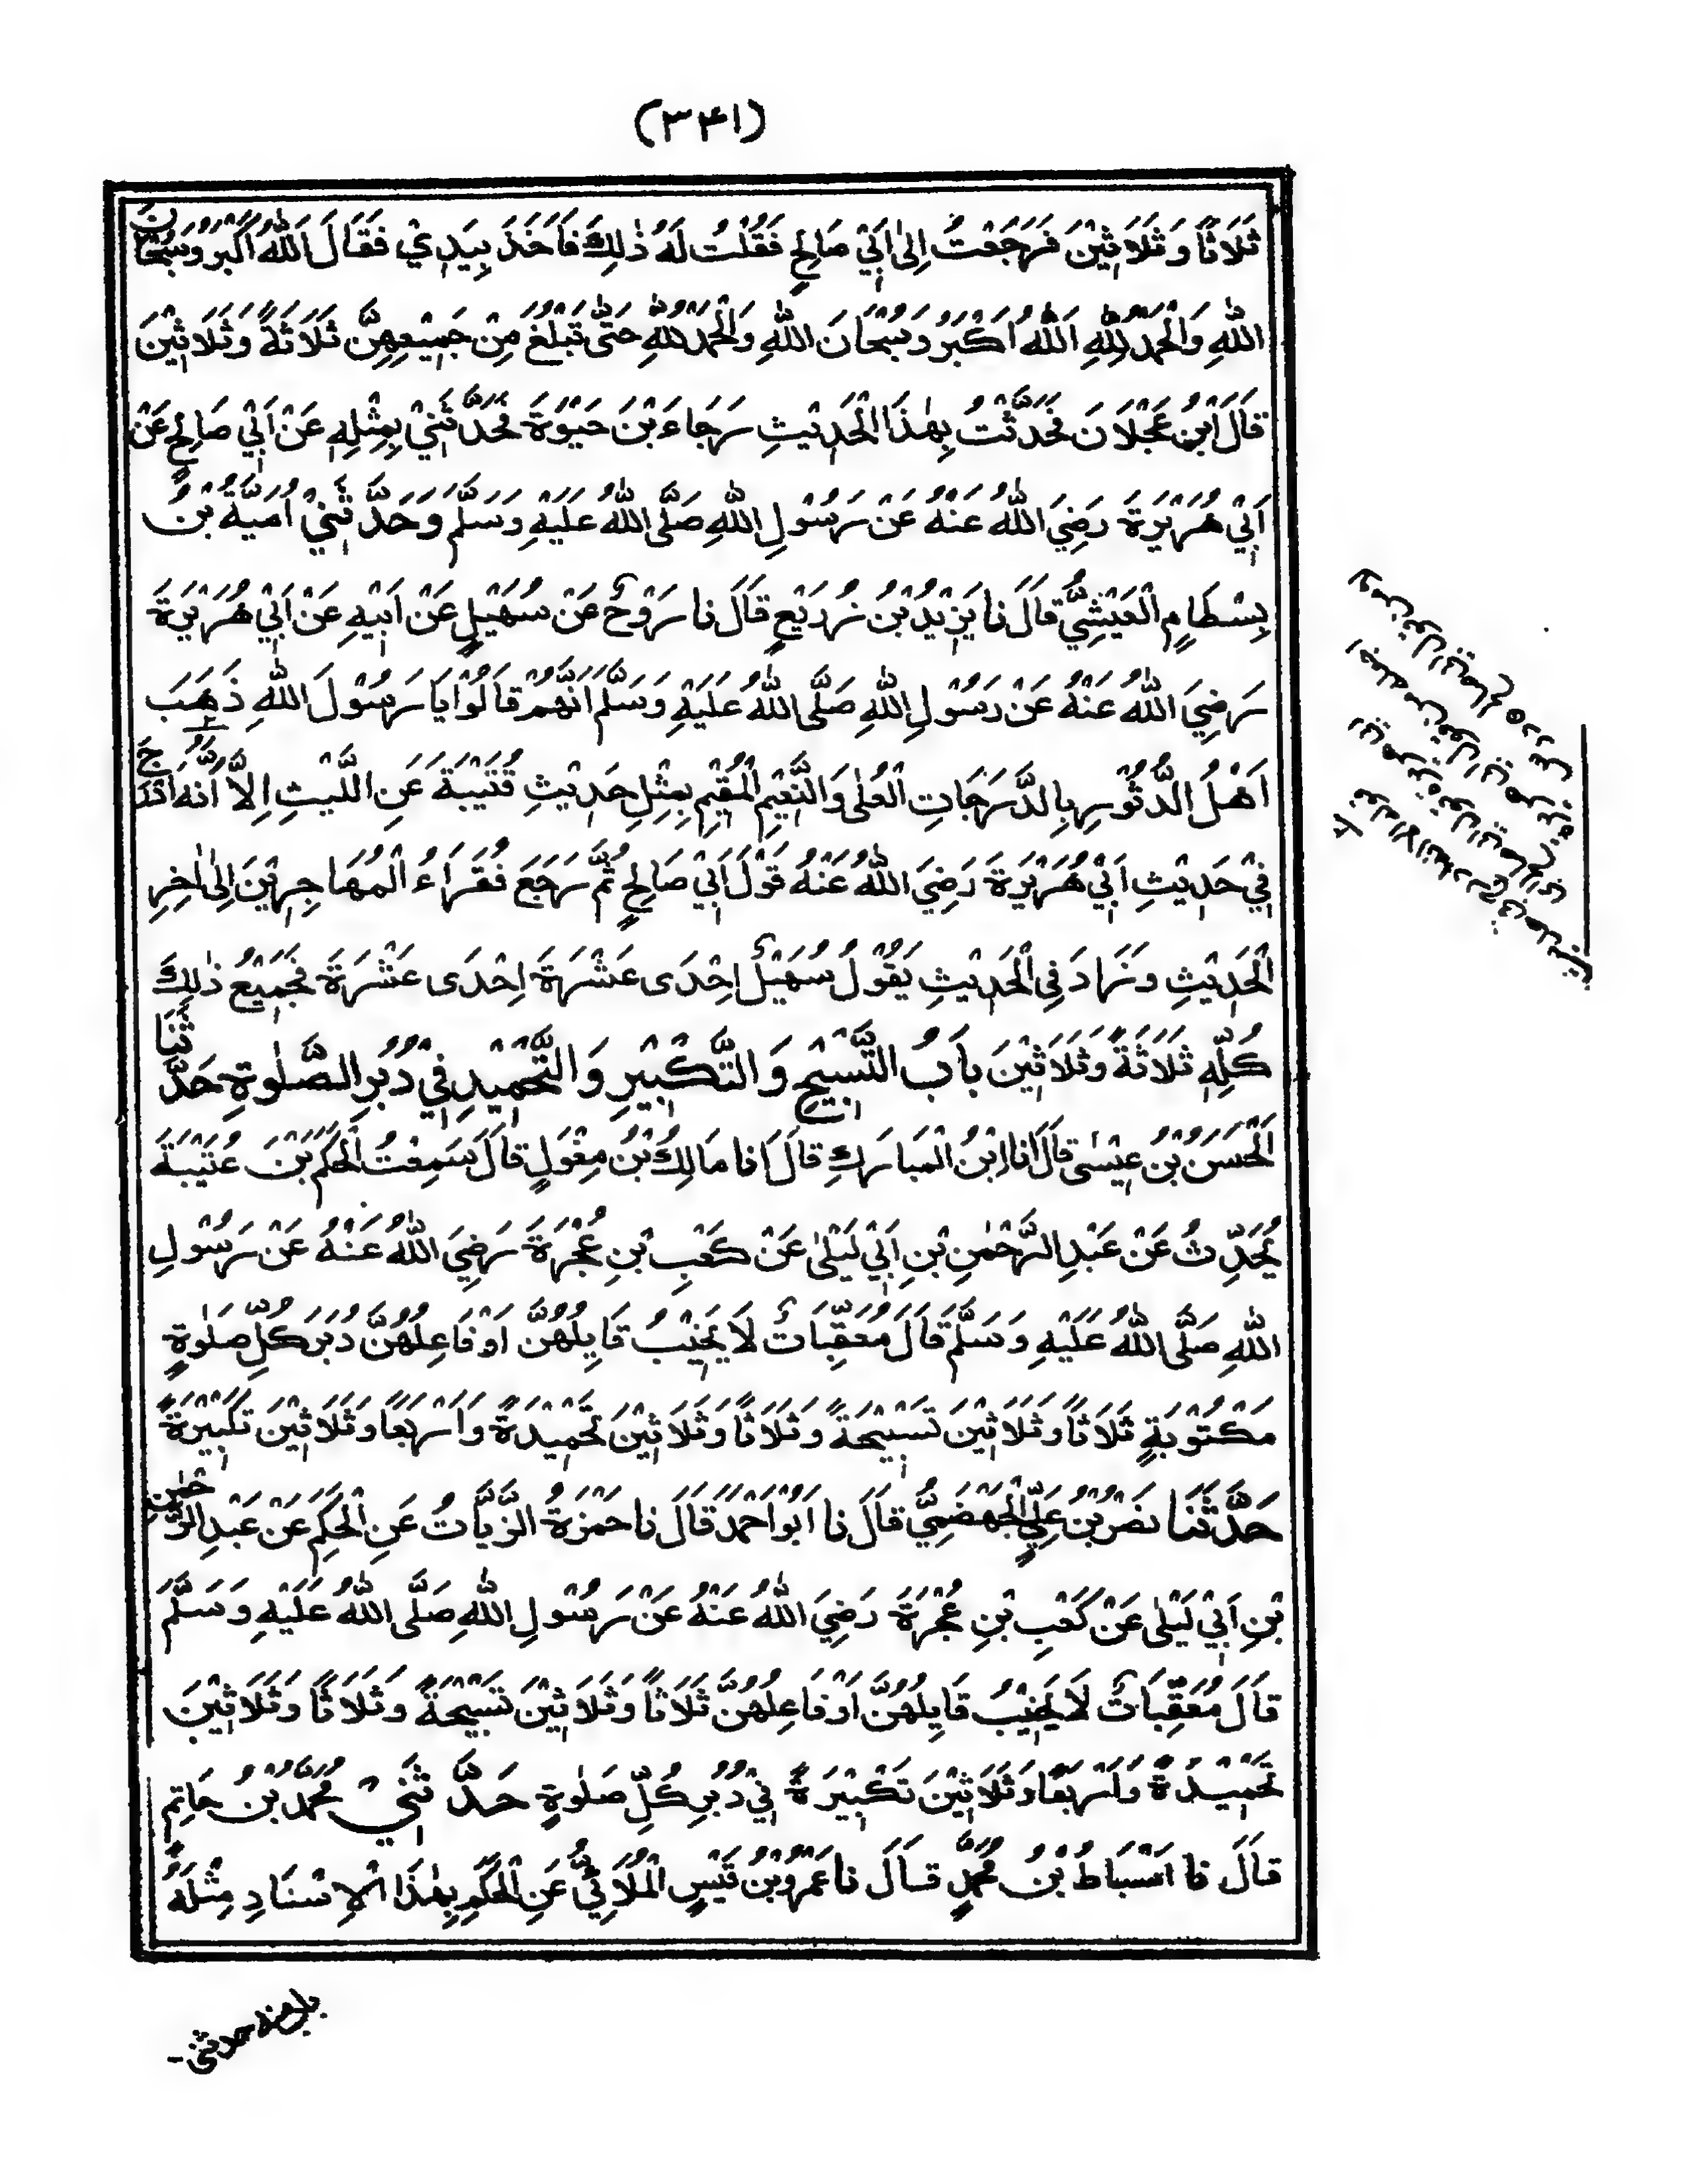 (۳۴۱)
ثَلَاثًا وَثَلَاثِيْنَ فَرَجَعْتُ اِلٰى اَبِيْ صَالِحٍ فَقُلْتُ لَهُ ذٰلِكَ فَاَخَذَ بِيَدِيْ فَقَالَ اَللهُ اَكْبَرُ وَسُبْحَانَ
اللهِ وَالْحَمْدُ لِلّٰهِ اَللهُ اَكْبَرُ وَسُبْحَانَ اللهِ وَالْحَمْدُ لِلّٰهِ حَتّٰى تَبْلُغَ مِنْ جَمِيْعِهِنَّ ثَلَاثَةً وَثَلَاثِيْنَ
قَالَ ابْنُ عَجْلَانَ فَحَدَّثْتُ بِهٰذَا الْحَدِيْثِ رَجَاءَ بْنَ حَيْوَةَ فَحَدَّثَنِيْ بِمِثْلِهٖ عَنْ اَبِيْ صَالِحٍ عَنْ
اَبِيْ هُرَيْرَةَ رَضِيَ اللهُ عَنْهُ عَنْ رَسُوْلِ اللهِ صَلَّى اللهُ عَلَيْهِ وَسَلَّمَ وَحَدَّثَنِيْ اُمَيَّةُ بْنُ
بِسْطَامٍ الْعَيْشِيُّ قَالَ نا يَزِيْدُ بْنُ زُرَيْعٍ قَالَ نا رَوْحٌ عَنْ سُهَيْلٍ عَنْ اَبِيْهِ عَنْ اَبِيْ هُرَيْرَةَ
رَضِيَ اللهُ عَنْهُ عَنْ رَسُوْلِ اللهِ صَلَّى اللهُ عَلَيْهِ وَسَلَّمَ اَنَّهُمْ قَالُوْا يَا رَسُوْلَ اللهِ ذَهَبَ
اَهْلُ الدُّثُوْرِ بِالدَّرَجَاتِ الْعُلٰى وَالنَّعِيْمِ الْمُقِيْمِ بِمِثْلِ حَدِيْثِ قُتَيْبَةَ عَنِ اللَّيْثِ اِلَّا اَنَّهُ اَدْرَجَ
فِيْ حَدِيْثِ اَبِيْ هُرَيْرَةَ رَضِيَ اللهُ عَنْهُ قَوْلَ اَبِيْ صَالِحٍ ثُمَّ رَجَعَ فُقَرَاءُ الْمُهَاجِرِيْنَ اِلٰى اٰخِرِ
الْحَدِيْثِ وَزَادَ فِي الْحَدِيْثِ يَقُوْلُ سُهَيْلٌ اِحْدَى عَشْرَةَ اِحْدَى عَشْرَةَ فَجَمِيْعُ ذٰلِكَ
كُلِّهٖ ثَلَاثَةٌ وَثَلَاثِيْنَ بَابُ التَّسْبِيْحِ وَالتَّكْبِيْرِ وَالتَّحْمِيْدِ فِيْ دُبُرِ الصَّلٰوةِ حَدَّثَنَا
الْحَسَنُ بْنُ عِيْسٰى قَالَ اَنا ابْنُ الْمُبَارَكِ قَالَ اَنا مَالِكُ بْنُ مِغْوَلٍ قَالَ سَمِعْتُ الْحَكَمَ بْنَ عُتَيْبَةَ
يُحَدِّثُ عَنْ عَبْدِ الرَّحْمٰنِ بْنِ اَبِيْ لَيْلٰى عَنْ كَعْبِ بْنِ عُجْرَةَ رَضِيَ اللهُ عَنْهُ عَنْ رَسُوْلِ
اللهِ صَلَّى اللهُ عَلَيْهِ وَسَلَّمَ قَالَ مُعَقِّبَاتٌ لَا يَخِيْبُ قَايِلُهُنَّ اَوْ فَاعِلُهُنَّ دُبُرَ كُلِّ صَلٰوةٍ
مَكْتُوْبَةٍ ثَلَاثًا وَثَلَاثِيْنَ تَسْبِيْحَةً وَثَلَاثًا وَثَلَاثِيْنَ تَحْمِيْدَةً وَاَرْبَعًا وَثَلَاثِيْنَ تَكْبِيْرَةً
حَدَّثَنَا نَصْرُ بْنُ عَلِيٍّ الْجَهْضَمِيُّ قَالَ نا اَبُوْ اَحْمَدَ قَالَ نا حَمْزَةُ الزَّيَّاتُ عَنِ الْحَكَمِ عَنْ عَبْدِ الرَّحْمٰنِ
بْنِ اَبِيْ لَيْلٰى عَنْ كَعْبِ بْنِ عُجْرَةَ رَضِيَ اللهُ عَنْهُ عَنْ رَسُوْلِ اللهِ صَلَّى اللهُ عَلَيْهِ وَسَلَّمَ
قَالَ مُعَقِّبَاتٌ لَا يَخِيْبُ قَايِلُهُنَّ اَوْ فَاعِلُهُنَّ ثَلَاثًا وَثَلَاثِيْنَ تَسْبِيْحَةً وَثَلَاثًا وَثَلَاثِيْنَ
تَحْمِيْدَةً وَاَرْبَعًا وَثَلَاثِيْنَ تَكْبِيْرَةً فِيْ دُبُرِ كُلِّ صَلٰوةٍ حَدَّثَنِيْ مُحَمَّدُ بْنُ حَاتِمٍ
قَالَ نا اَسْبَاطُ بْنُ مُحَمَّدٍ قَالَ نا عَمْرُو بْنُ قَيْسٍ الْمُلَائِيُّ عَنِ الْحَكَمِ بِهٰذَا الْاِسْنَادِ مِثْلَهُ